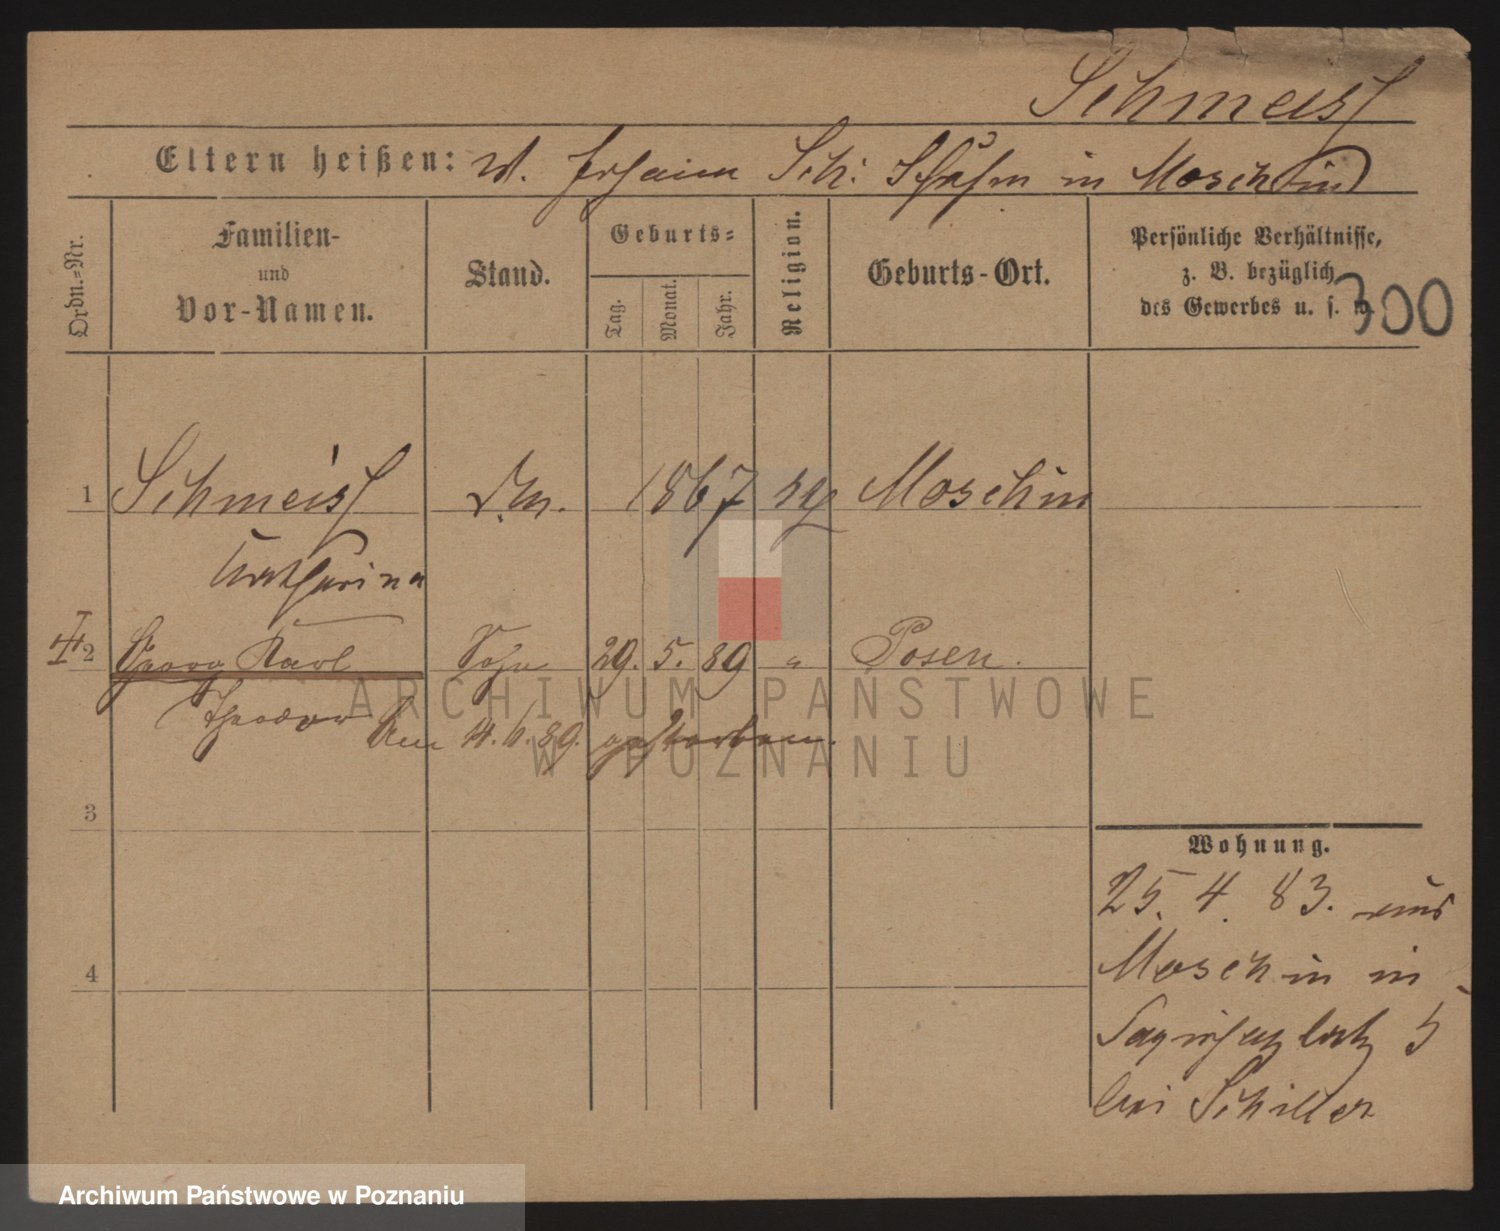 Schmeisf
Eltern heißen: Sch: in Moschin
Ordn.=Nr.
Familien-
und
Vor-Namen.
Stand.
Geburts=
Tag.
Monat.
Jahr.
Religion.
Geburts-Ort.
Persönliche Verhältnisse,
z. B. bezüglich
des Gewerbes u. s. w.
300
1 Schmeisf 1867 Moschin
Katharina
2 Georg Karl Sohn 29. 5. 89 " Posen.
Theodor Am 14. 6. 89. gestorben.
3
4
Wohnung.
25. 4. 83. aus
Moschin in
5
bei Schiller
ARCHIWUM PAŃSTWOWE
W POZNANIU
Archiwum Państwowe w Poznaniu